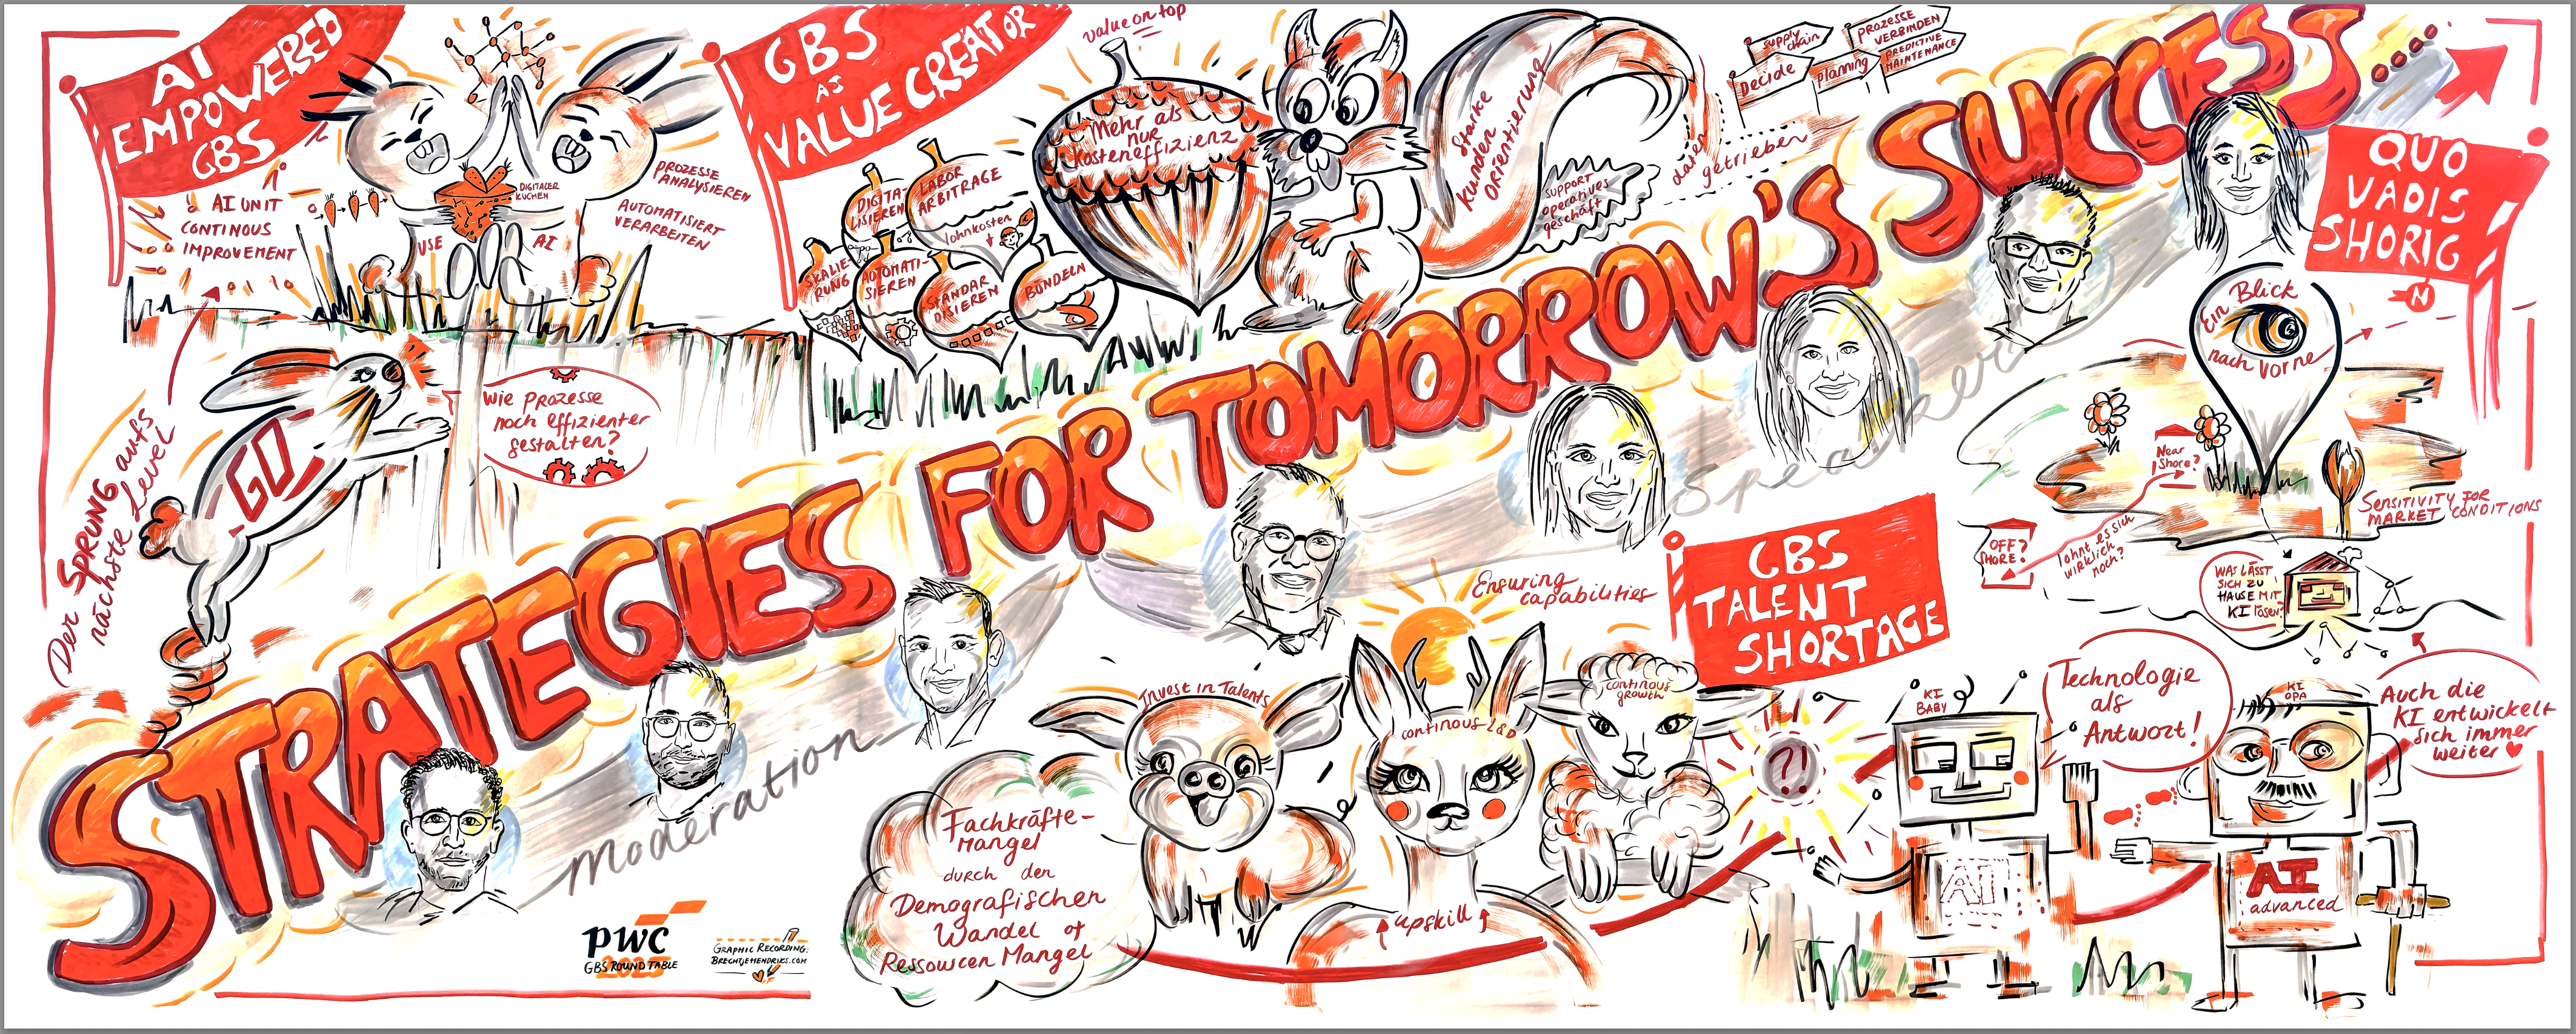 AI
EMPOWERED
GBS
AI UNIT
CONTINOUS
IMPROVEMENT
DIGITALER
KUCHEN
USE
AI
PROZESSE
ANALYSIEREN
AUTOMATISIERT
VERARBEITEN
Der SPRUNG aufs
nächste Level
GO
Wie Prozesse
noch effizienter
gestalten?
GBS
AS
VALUE CREATOR
value on top
DIGITA-
LISIEREN
LABOR
ARBITRAGE
lohnkosten
SKALIE-
RUNG
AUTOMATI-
SIEREN
STANDAR
DISIEREN
BÜNDELN
Mehr als
nur
Kosteneffizienz
Starke
Kunden
Orientierung
SUPPORT
operatives
geschäft
daten
getrieben
supply
chain
Decide
planning
PROZESSE
VERBINDEN
PREDICTIVE
MAINTENANCE
STRATEGIES FOR TOMORROW'S SUCCESS...
Moderation
Speaker
QUO
VADIS
SHORIG
N
Ein Blick
nach vorne
Near
Shore?
OFF?
SHORE?
lohnt es sich
wirklich
noch?
SENSITIVITY FOR
MARKET CONDITIONS
WAS LÄSST
SICH ZU
HAUSE MIT
KI lösen?
GBS
TALENT
SHORTAGE
Ensuring
capabilities
Invest in Talents
continous L&D
continous
growth
upskill
Fachkräfte-
Mangel
durch den
Demografischen
Wandel of
Ressourcen Mangel
?!
KI
BABY
AI
Technologie
als
Antwort!
KI
OPA
AI
advanced
Auch die
KI entwickelt
sich immer
weiter
pwc
GBS ROUND TABLE
2025
GRAPHIC RECORDING:
BRECHTJEHENDRIKS.COM